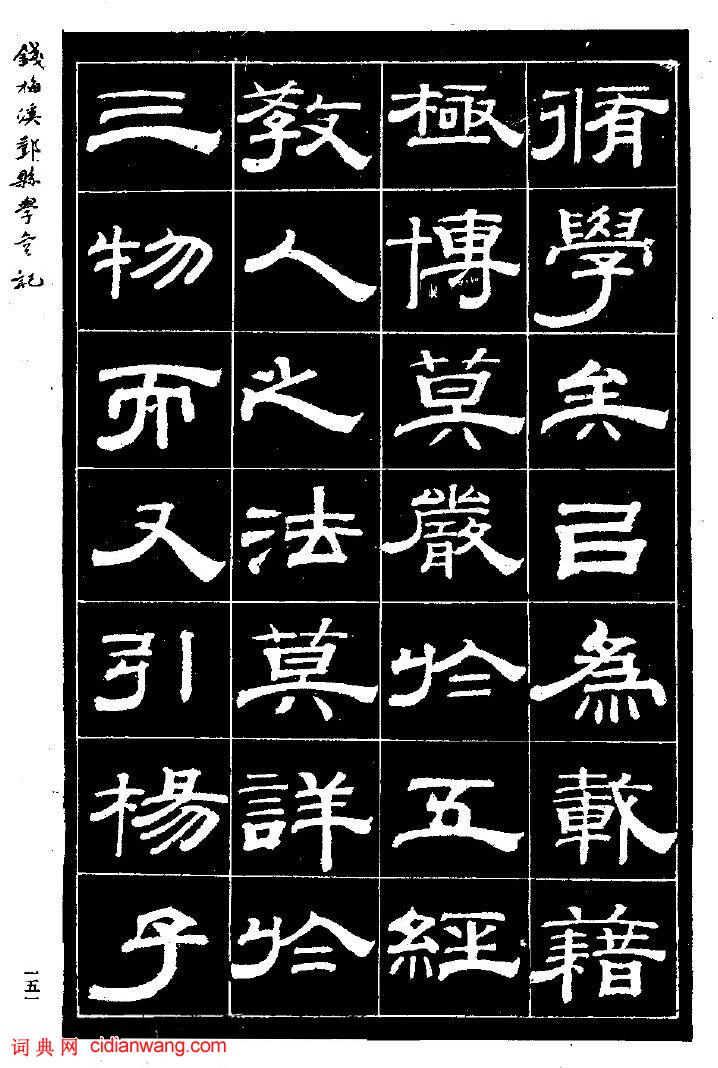 脩學矣㠯為載藉
極博莫嚴於五經
教人之法莫詳於
三物而又引楊子
錢梅溪鄞縣學堂記
一五一
词典网 cidianwang.com